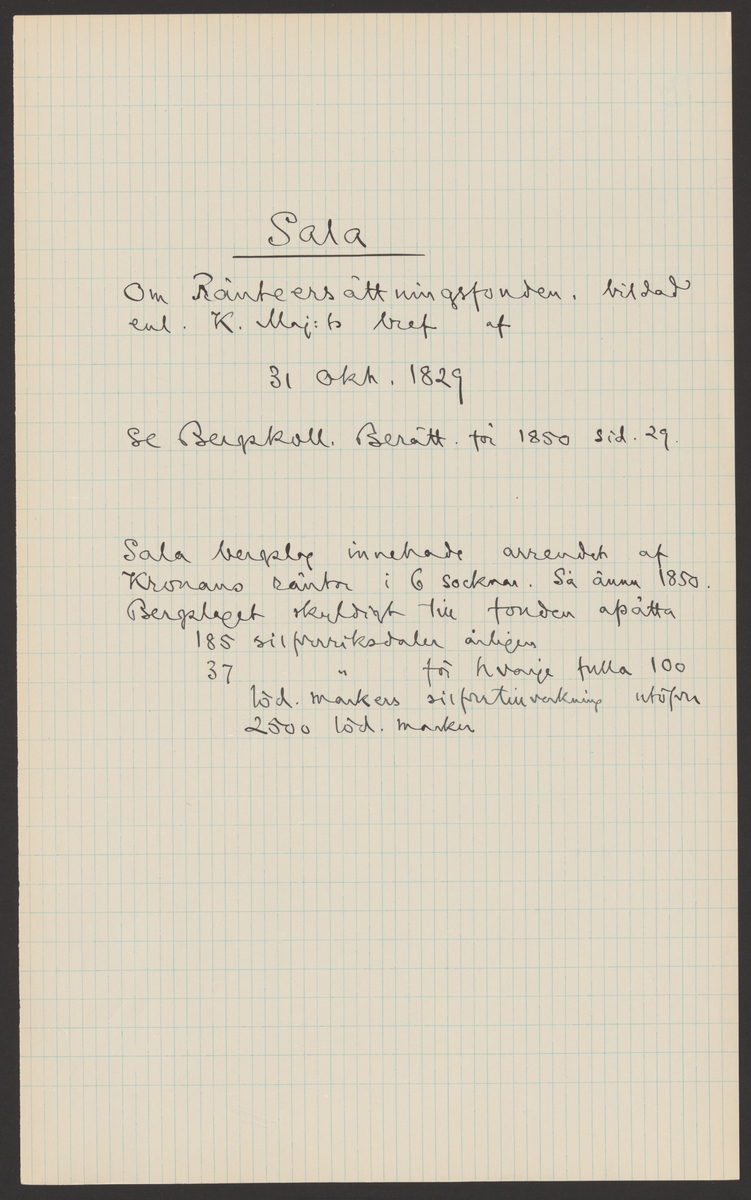 Sala
Om Ränteersättningsfonden, bildad
enl. K. Maj:ts bref af
31 Okt. 1829
Se Bergskoll. Berätt. för 1850 sid. 29.
Sala bergslag innehade arrendet af
Kronans räntor i 6 socknar. Så ännu 1850.
Bergslaget skyldigt till fonden afsätta
185 silfverriksdaler årligen
37 " för hvarje fulla 100
löd. markers silfvertillverkning utöfver
2500 löd. marker